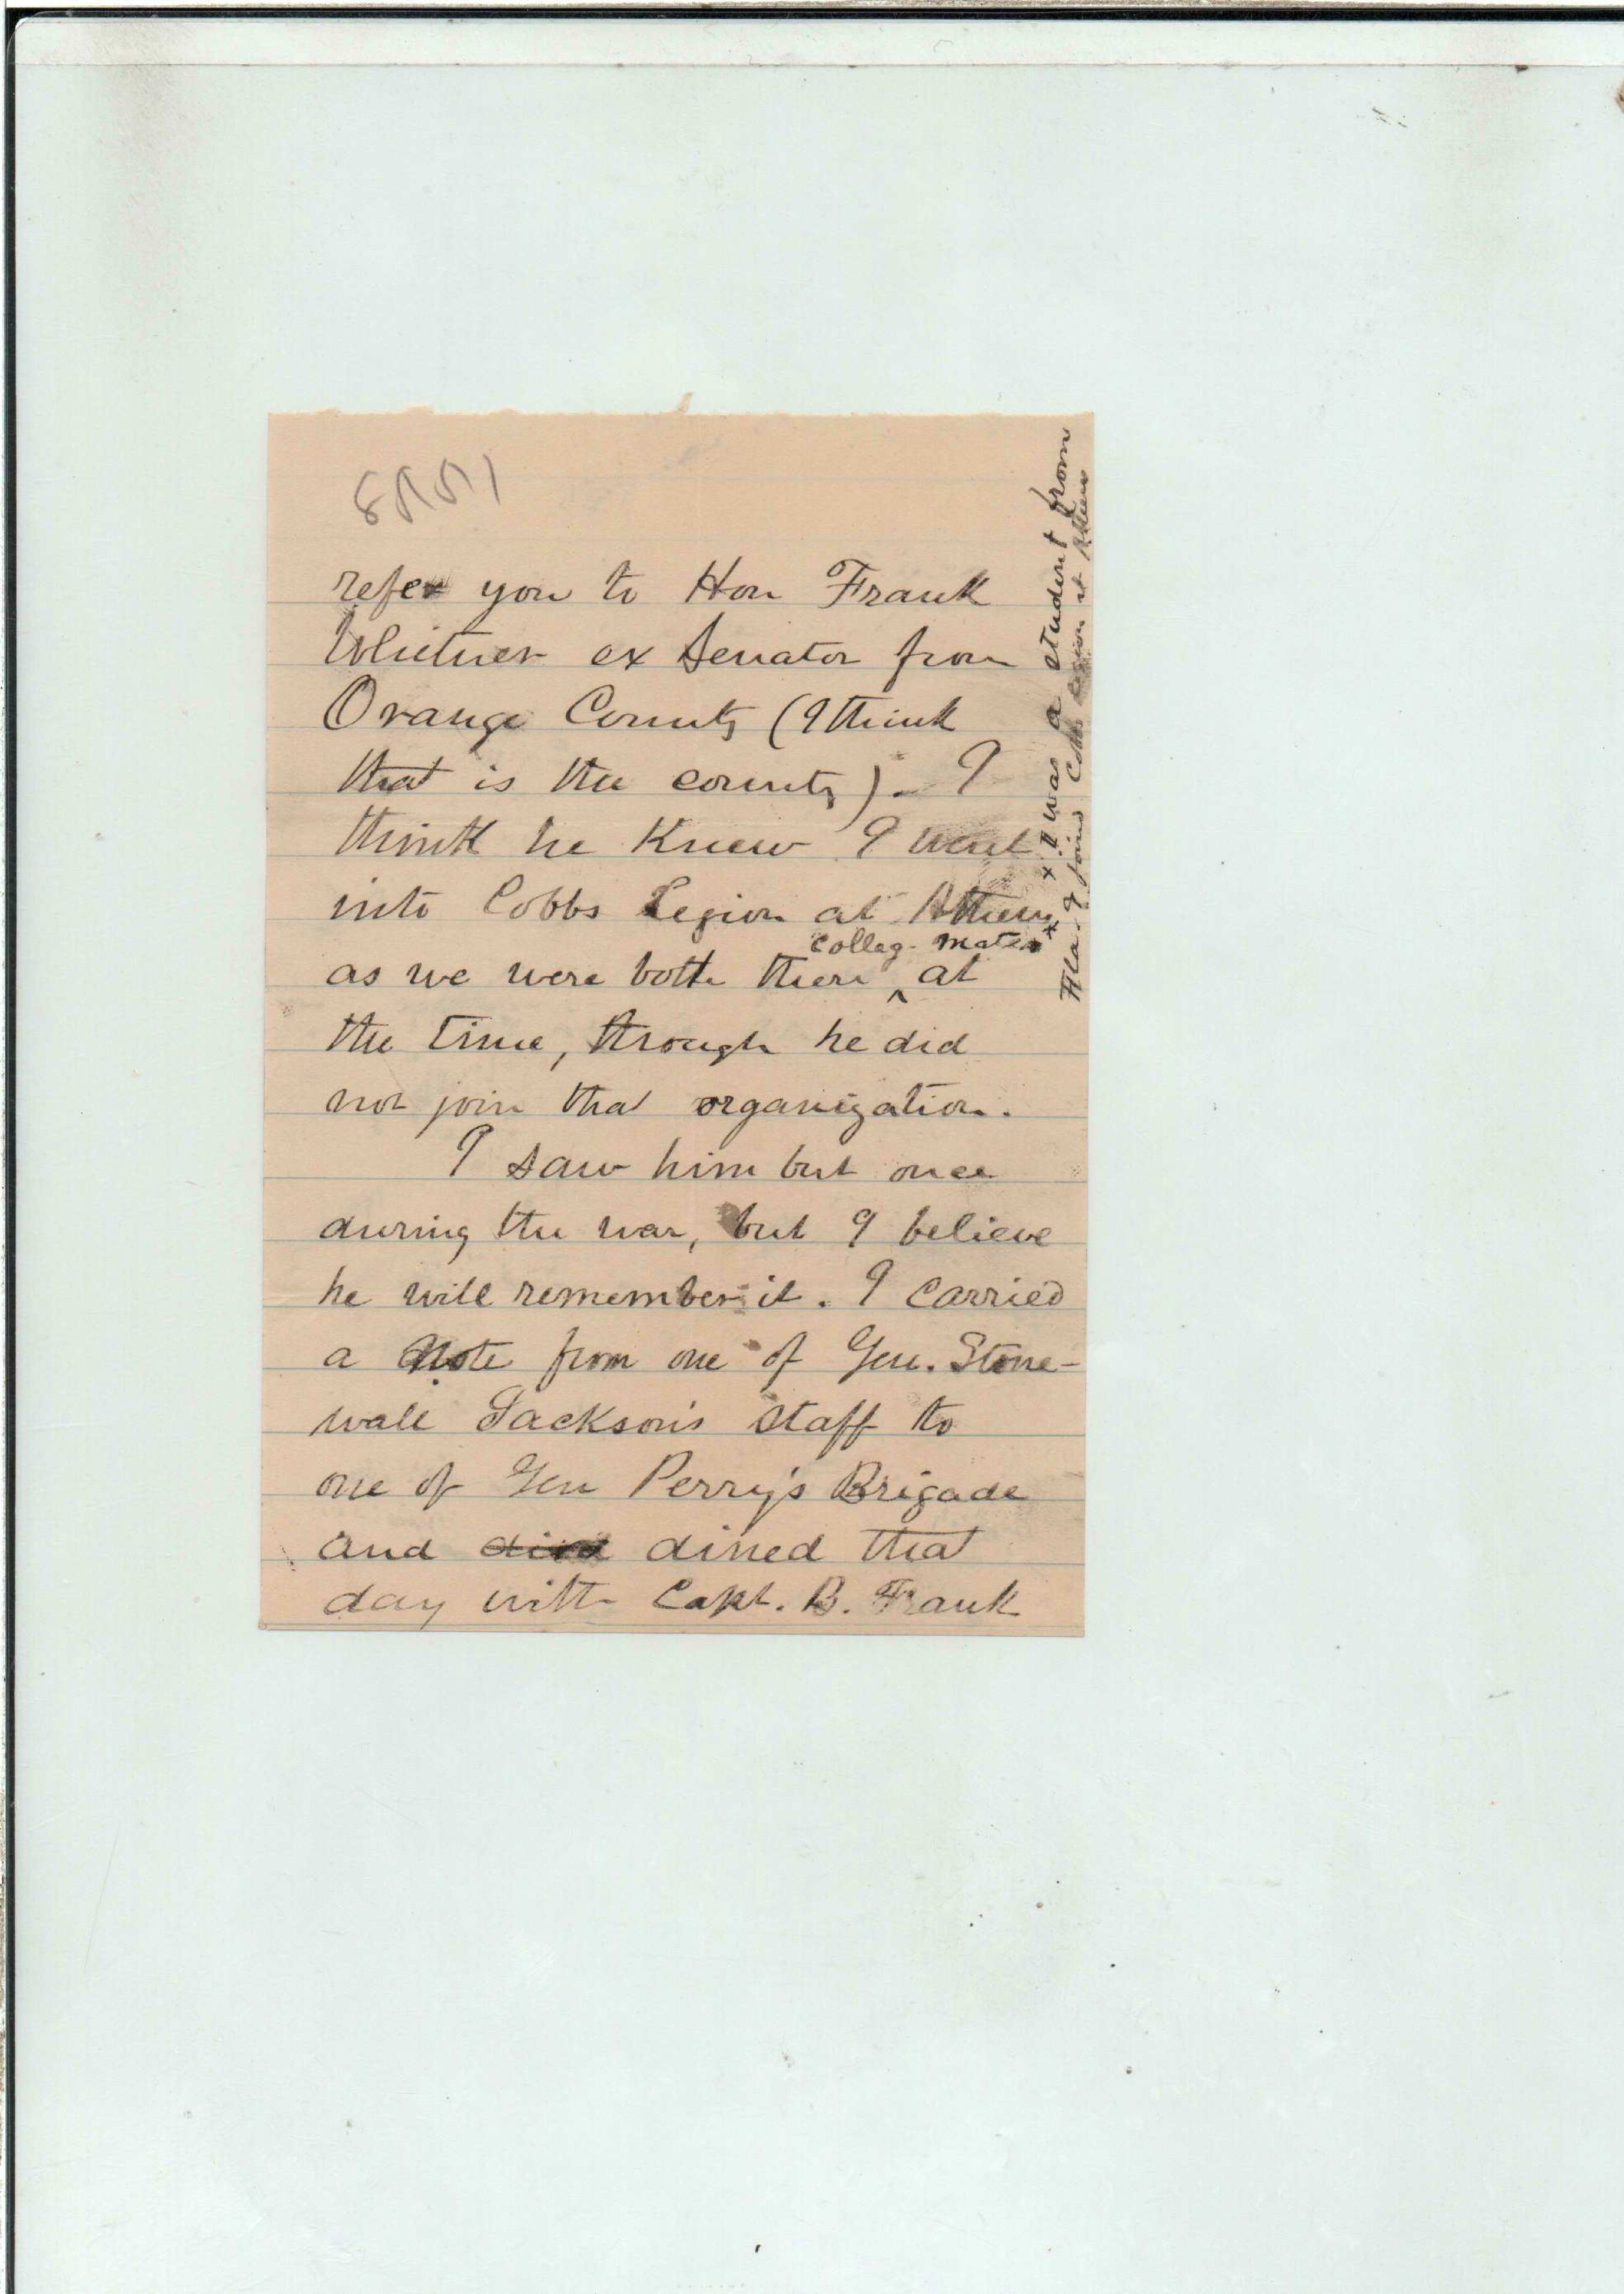 refer you to Hon Frank
Whitner ex Senator from
Orange County (I think
that is the county). I
think he knew I went
into Cobbs Legion at Athens
colleg- mates*
as we were both there ^ at
the time, through he did
not join that organization.
I saw him but once
during the war, but I believe
he will remember it. I carried
a note from one of Gen. Stone-
wall Jackson's staff to
one of Gen Perry's Brigade
and dined that
day with Capt. B. Frank
x I was a student from
Fla. I joined Cobbs Legion at Athens